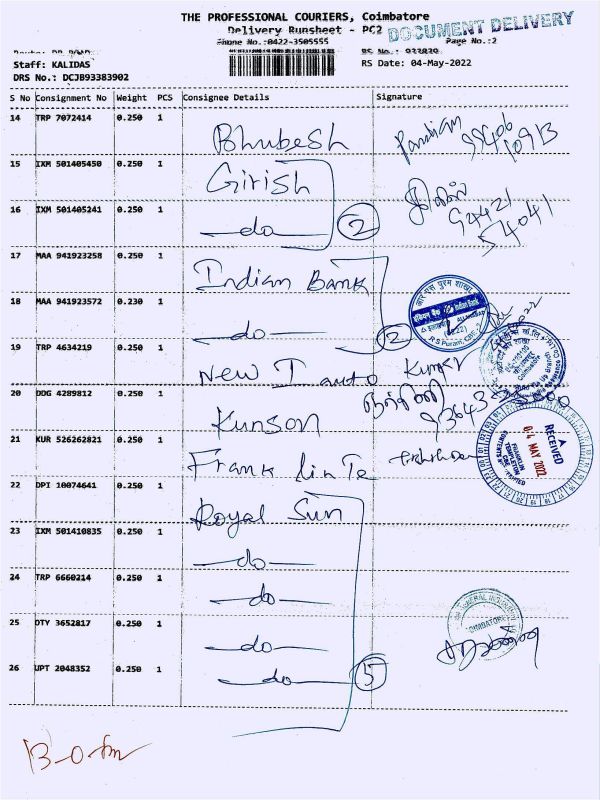 THE PROFESSIONAL COURIERS, Coimbatore
Delivery Runsheet - PC2
DOCUMENT DELIVERY
Phone No.:0422-3505555
Page No.:2
Staff: KALIDAS
RS Date: 04-May-2022
DRS No.: DCJB93383902
S No Consignment No Weight PCS Consignee Details Signature
14 TRP 7072414 0.250 1 Bhubesh Pandian
15 IXM 501405450 0.250 1 Girish
16 IXM 501405241 0.250 1 —do— 2 94421 54041
17 MAA 941923258 0.250 1 Indian Bank
18 MAA 941923572 0.230 1 —do— 2
19 TRP 4634219 0.250 1 New I auto Kumar
20 DDG 4289812 0.250 1 Kunson
21 KUR 526262821 0.250 1 Frank lin Te
RECEIVED
04 MAY 2022
FRANKLIN
TEMPLETON
22 DPI 10074641 0.250 1 Royal Sun
23 IXM 501410835 0.250 1 —do—
24 TRP 6660214 0.250 1 —do—
25 OTY 3652817 0.250 1 —do—
26 UPT 2048352 0.250 1 —do— 5